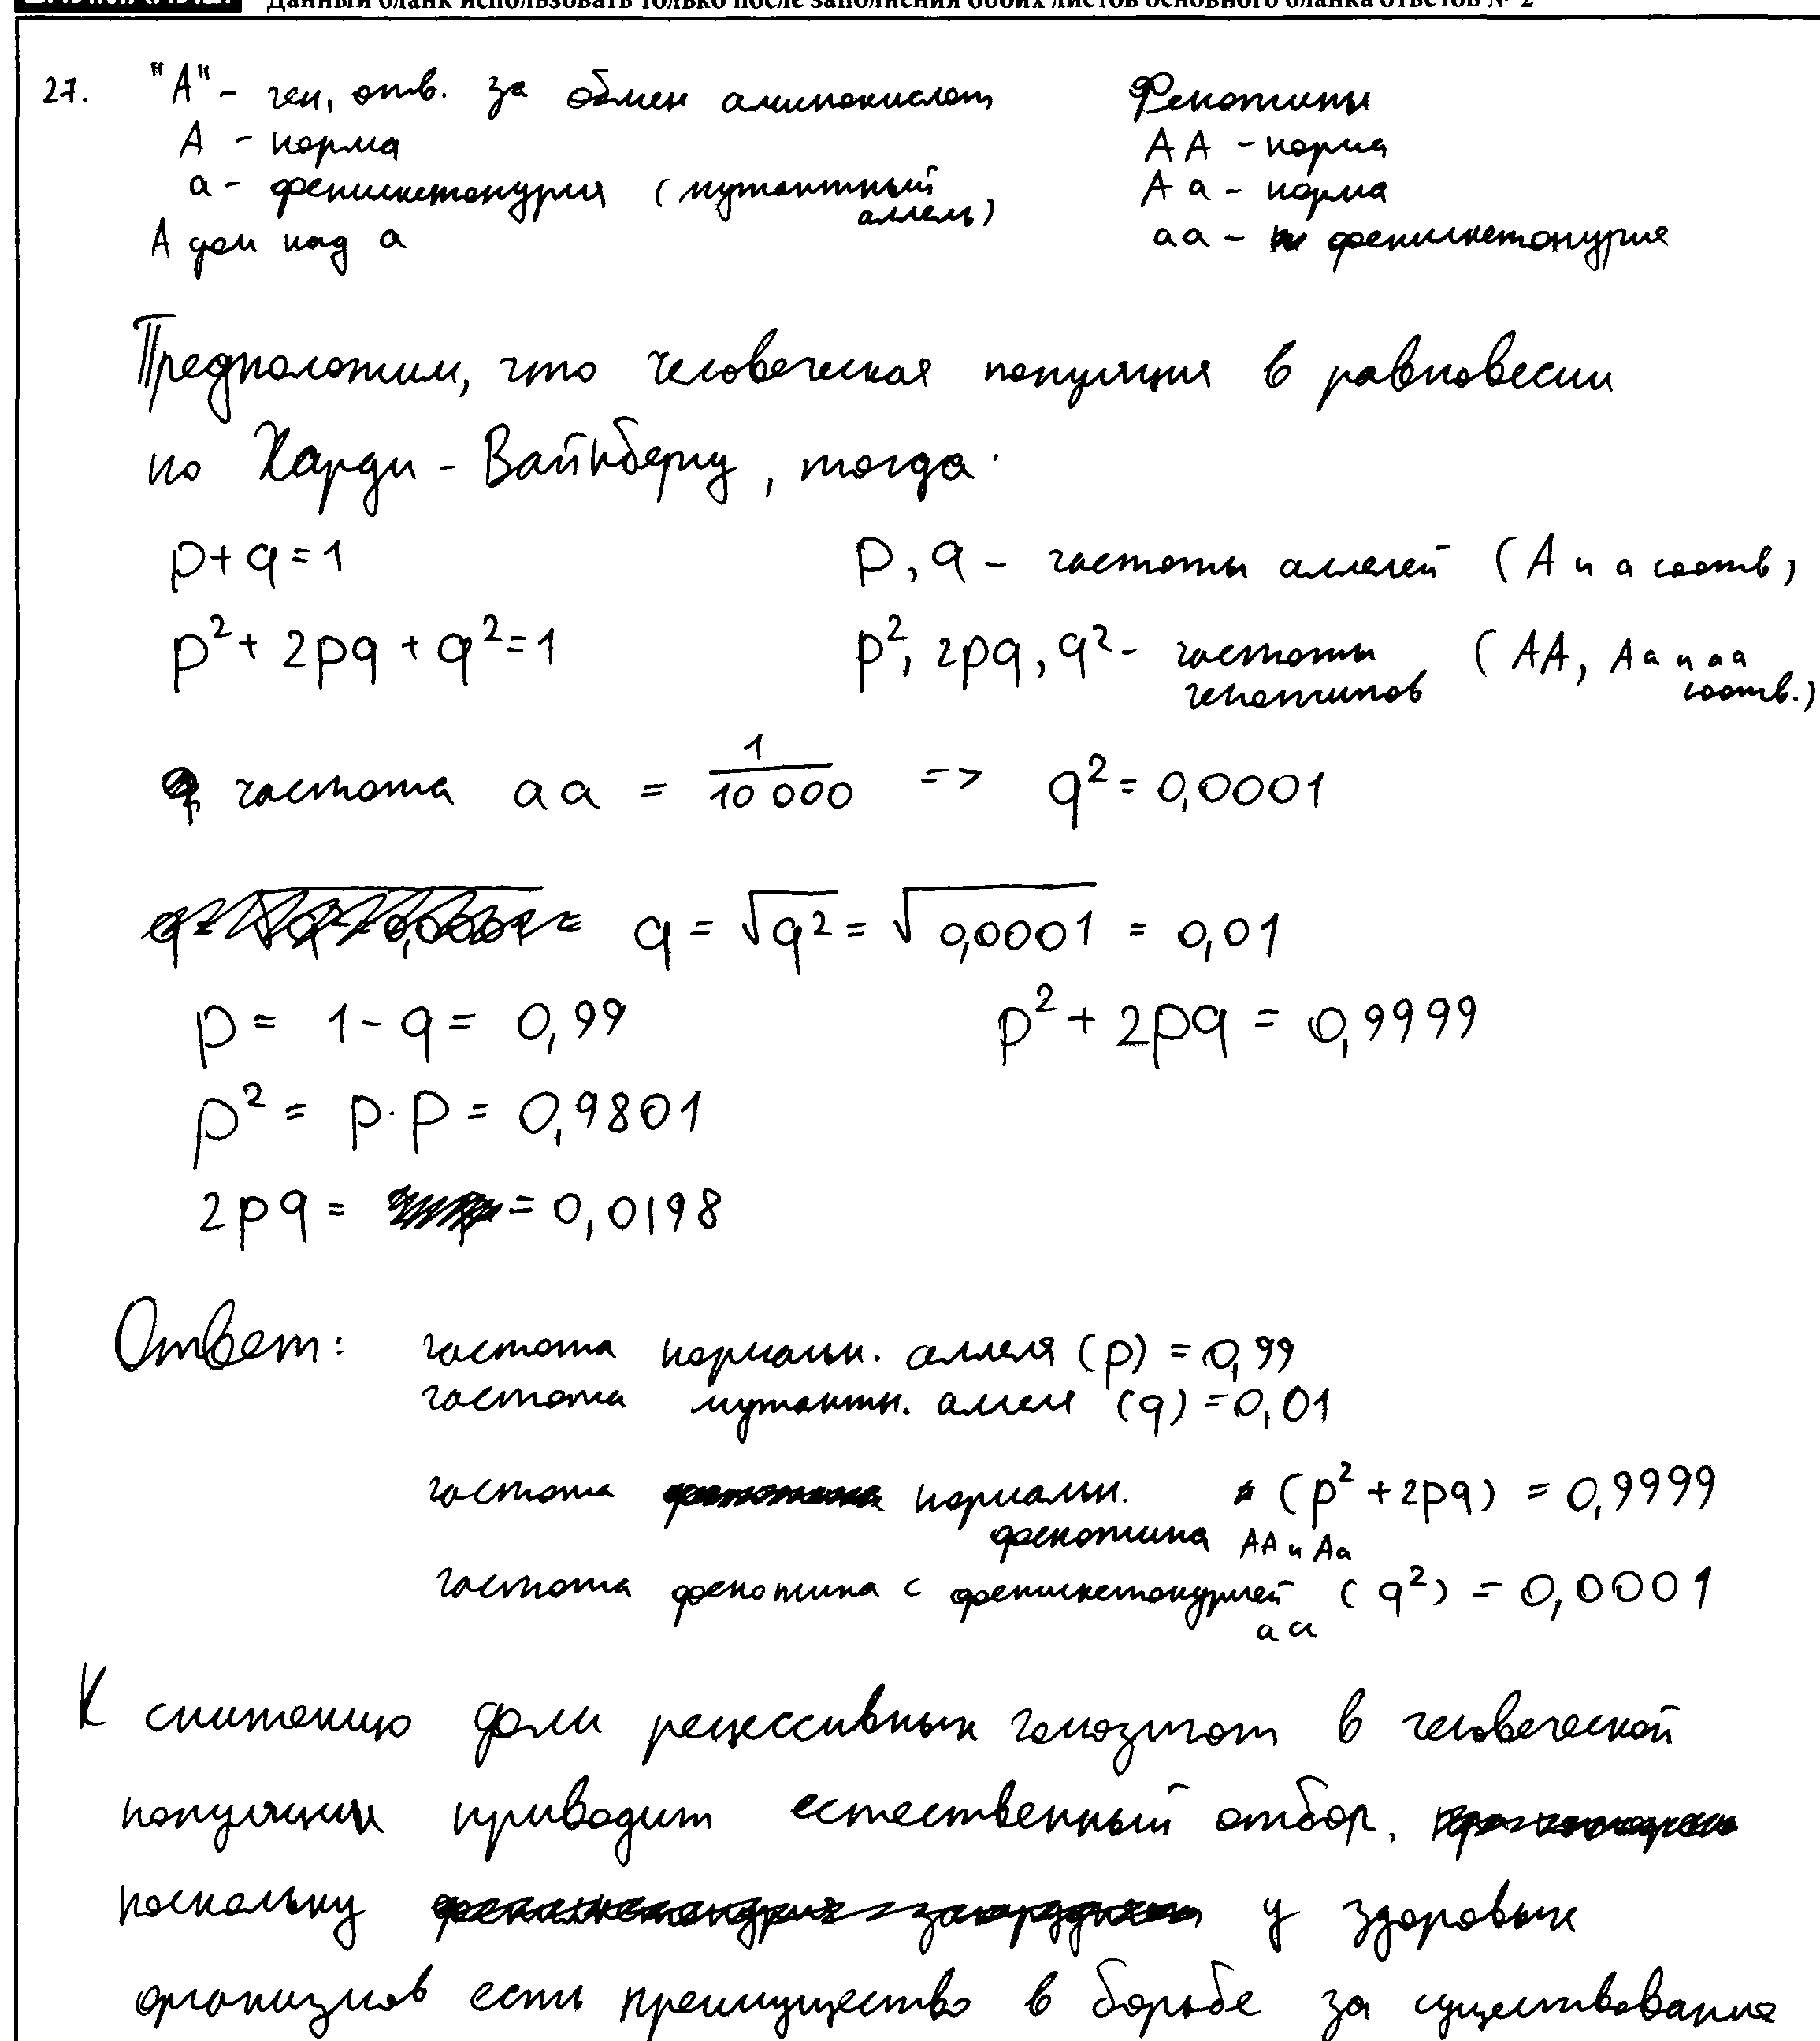 Данный бланк использовать только после заполнения обоих листов основного бланка ответов № 2
27. "А" - ген, отв. за обмен аминокислот
А - норма
а - фенилкетонурия (мутантный аллель)
А дом над а
Фенотипы
АА - норма
Аа - норма
аа - фенилкетонурия
Предположим, что человеческая популяция в равновесии
по Харди - Вайнбергу, тогда
p + q = 1
p, q - частоты аллелей (А и а соотв)
p² + 2pq + q² = 1
p², 2pq, q² - частоты генотипов (АА, Аа и аа соотв.)
частота аа = 1/10 000 => q² = 0,0001
q = √q² = √0,0001 = 0,01
p = 1 - q = 0,99
p² + 2pq = 0,9999
p² = p · p = 0,9801
2pq = = 0,0198
Ответ: частота нормальн. аллеля (p) = 0,99
частота мутантн. аллеля (q) = 0,01
частота нормальн. фенотипа АА и Аа (p² + 2pq) = 0,9999
частота фенотипа с фенилкетонурией аа (q²) = 0,0001
К снижению доли рецессивных гомозигот в человеческой
популяции приводит естественный отбор,
поскольку у здоровых
организмов есть преимущество в борьбе за существование